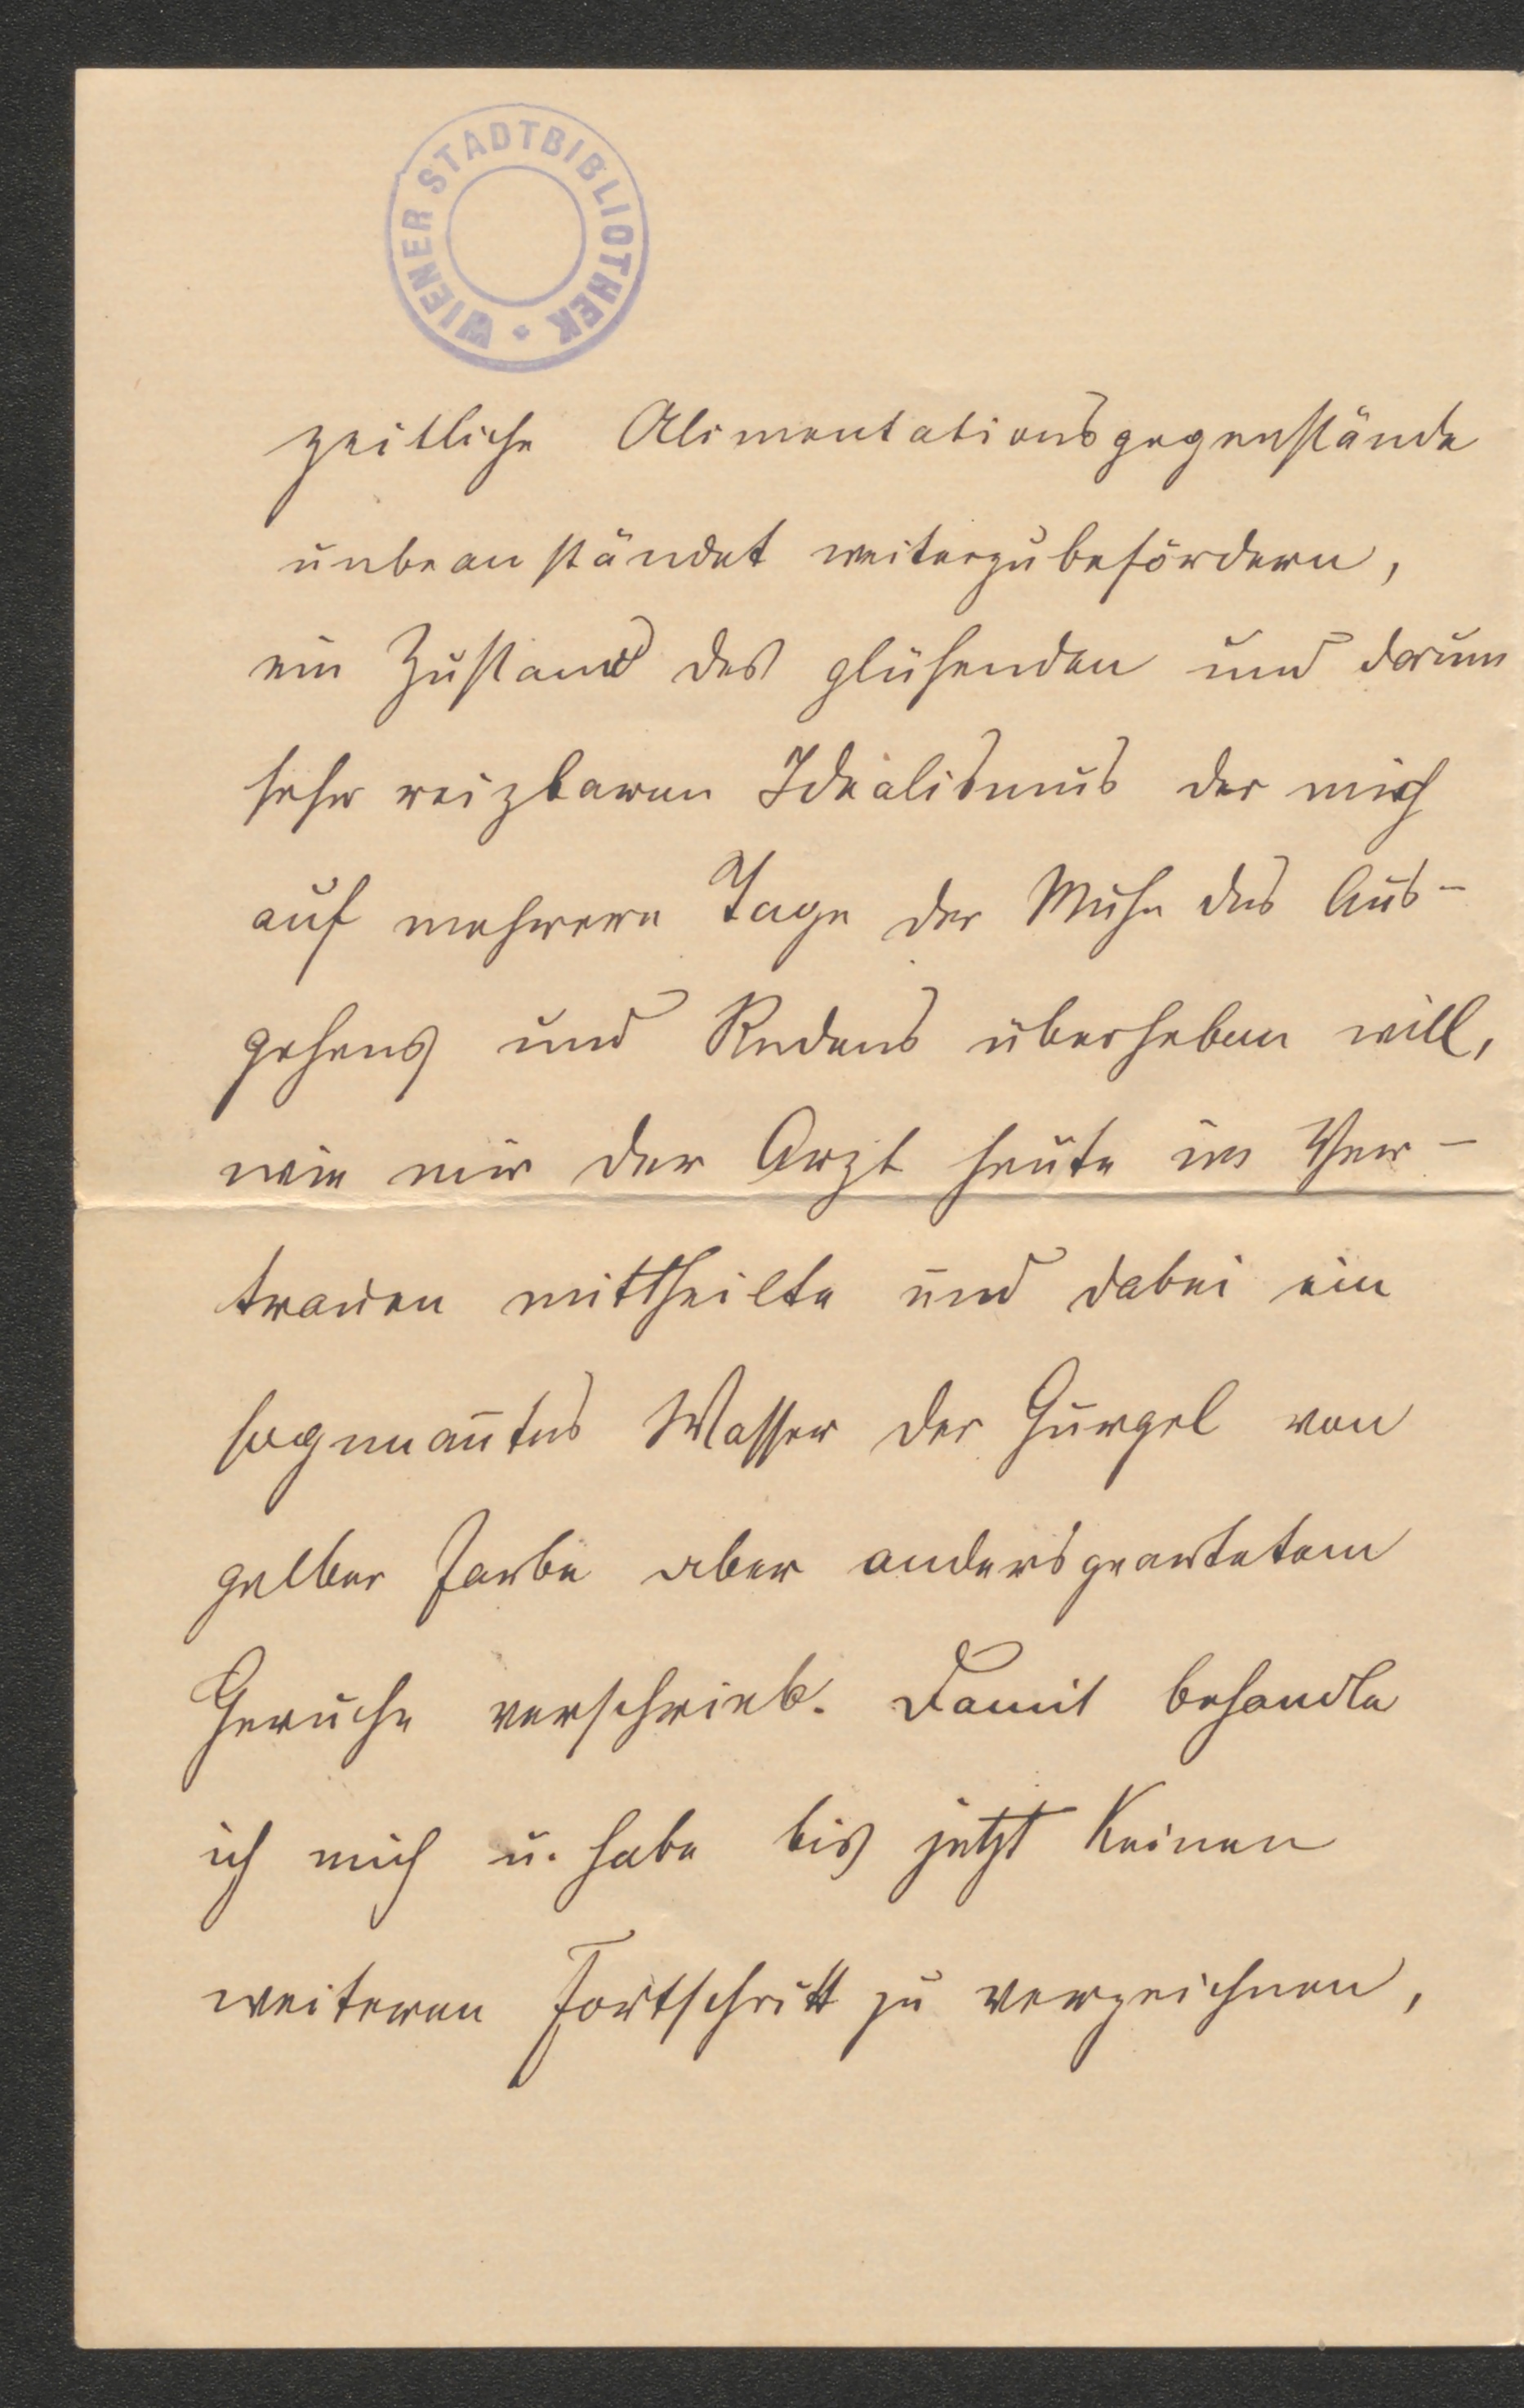 WIENER STADTBIBLIOTHEK
zeitliche Alimentationsgegenstände
unbeanständet weiterzubefördern,
ein Zustand des glühenden und darum
sehr reizbaren Idealismus der mich
auf mehrere Tage der Mühe des Aus-
gehens und Redens überheben will,
wie mir der Arzt heute im Ver-
trauen mittheilte und dabei ein
sogenan̄tes Wasser der Gurgel von
gelber Farbe aber andersgeartetem
Geruche verschrieb. Damit behandle
ich mich u. habe bis jetzt keinen
weiteren Fortschritt zu verzeichnen,